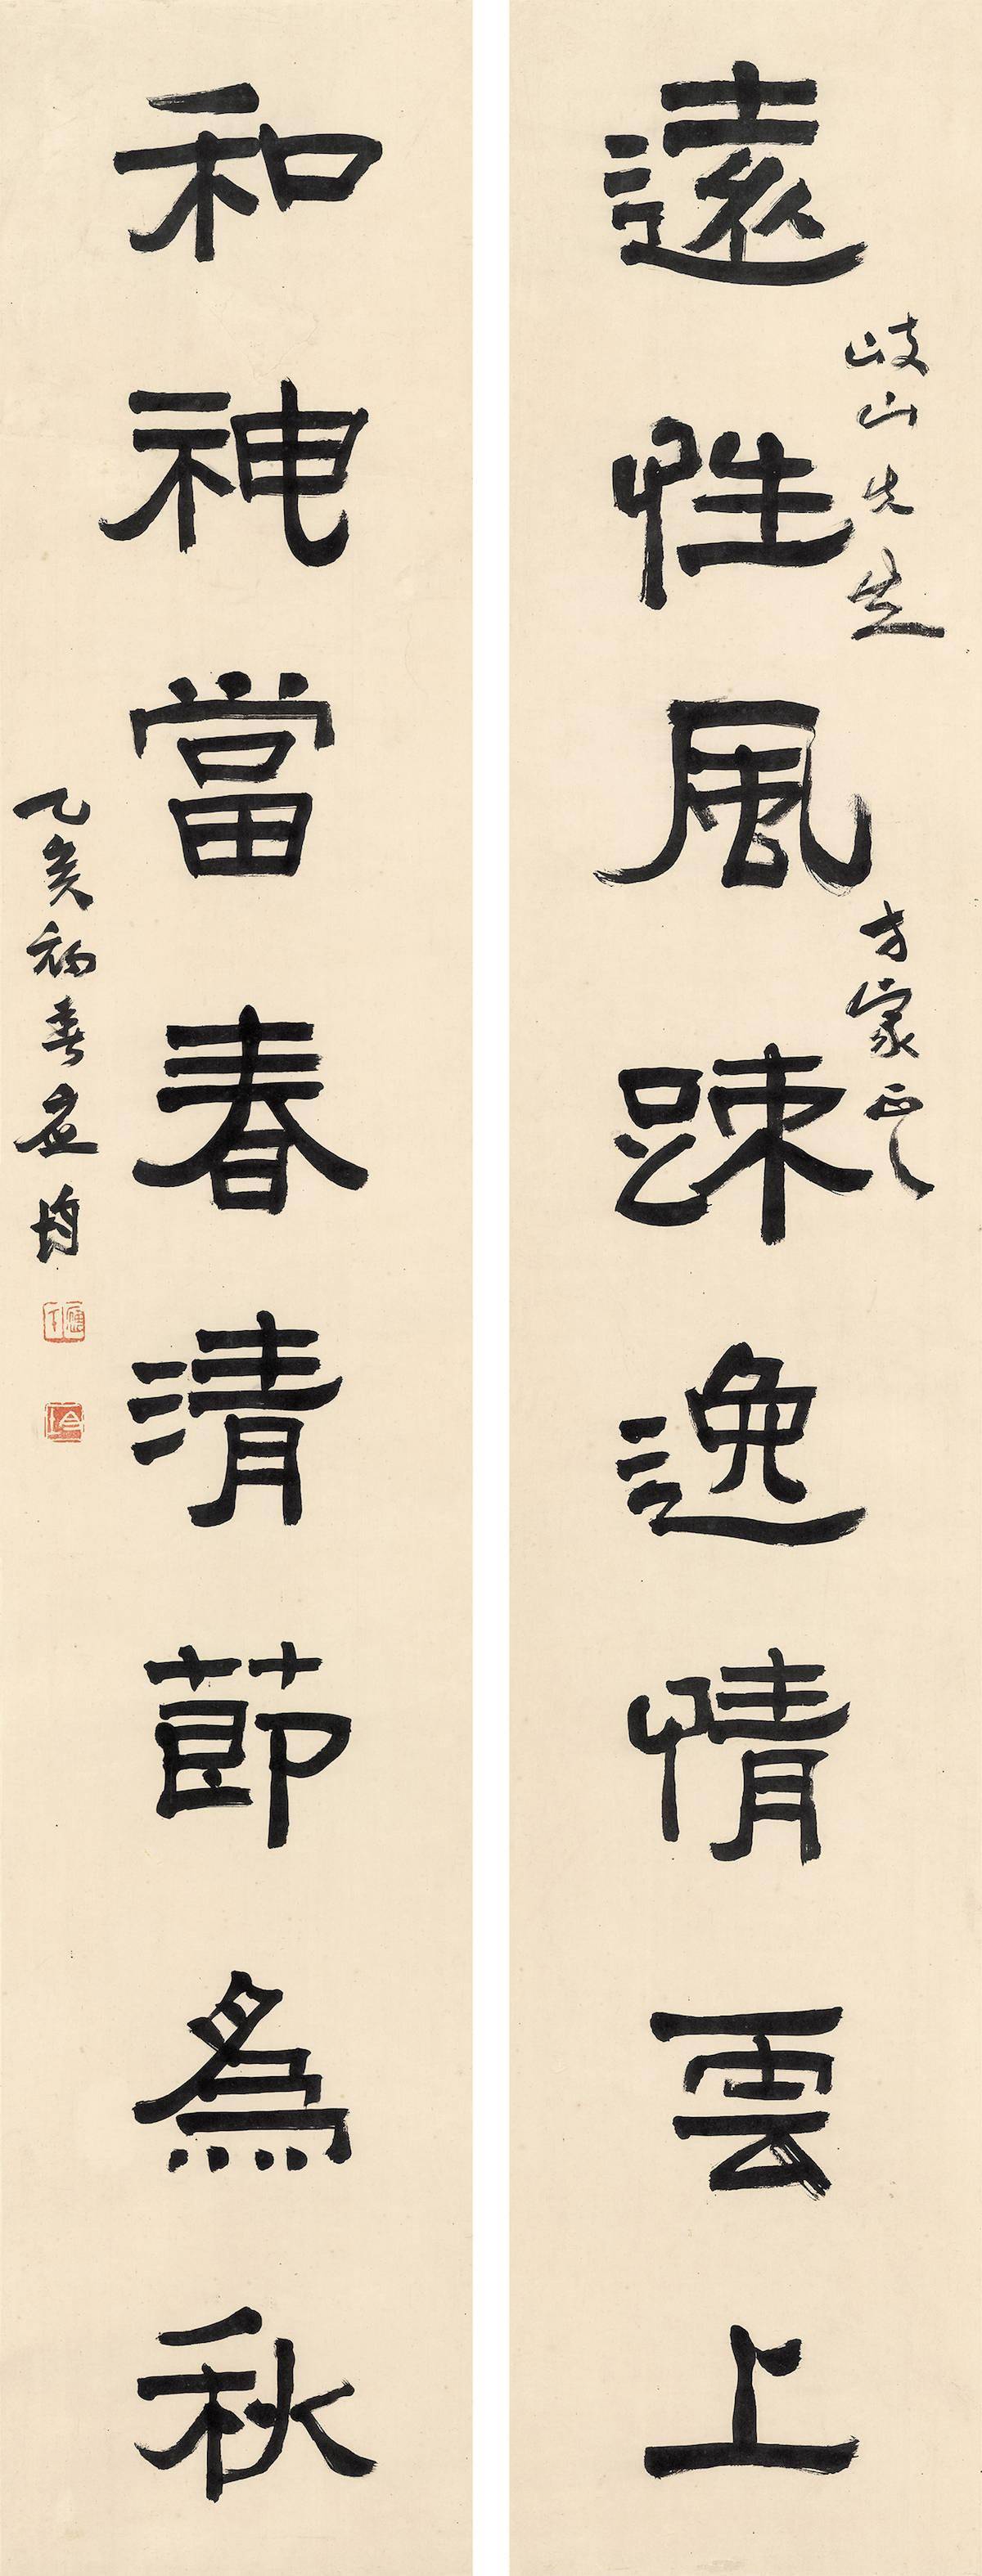 岐山先生
方家正之
遠性風疎逸情雲上
和神當春清節為秋
乙亥初春